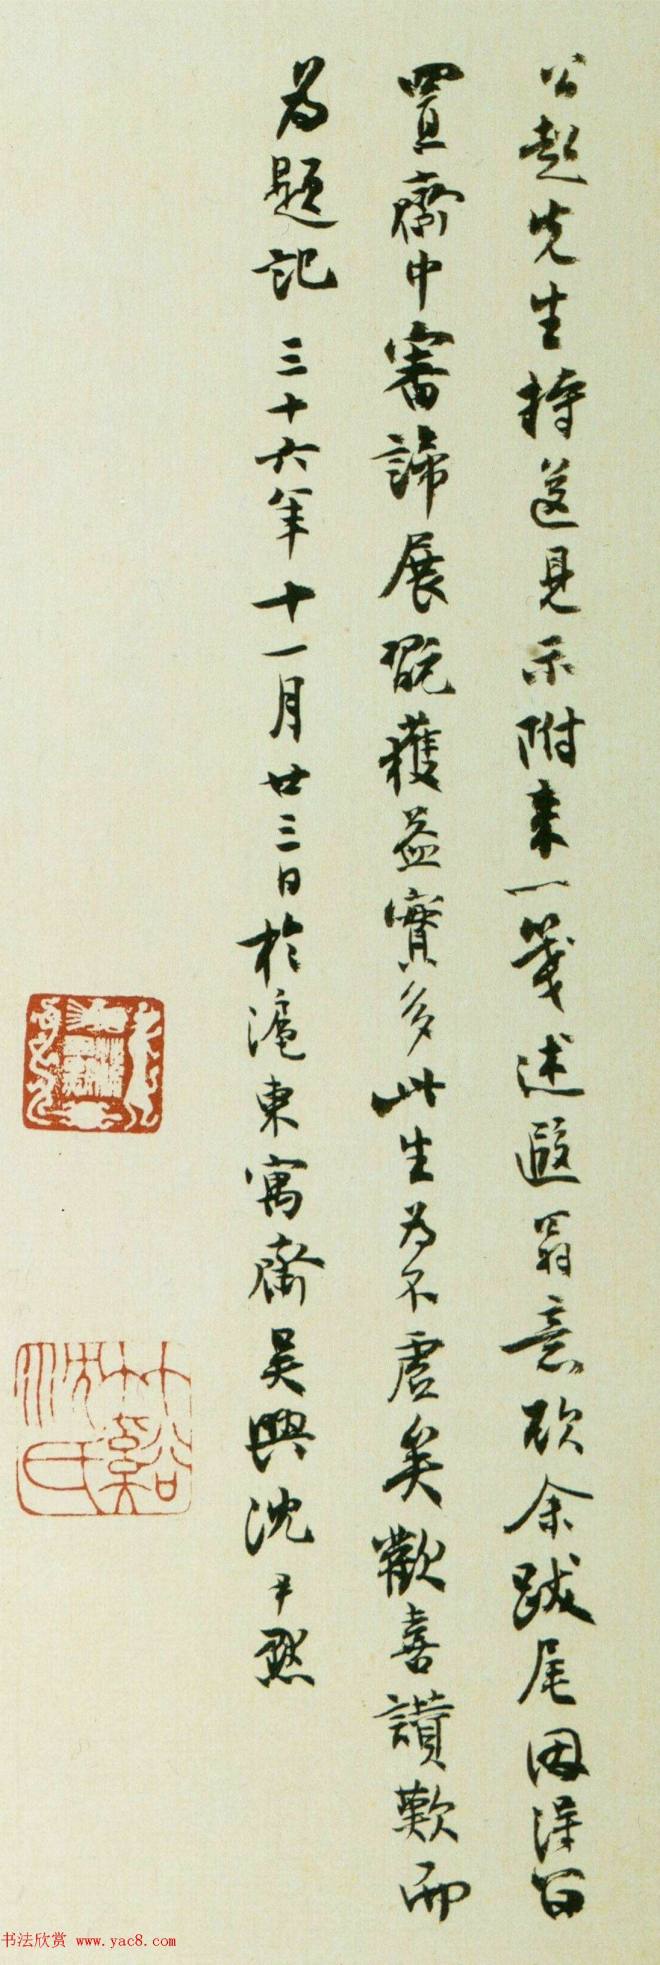 公超先生持至見示附来一箋述遐翁意欲余跋尾因得留
置齋中審諦展翫獲益實多此生為不虛矣歡喜讃歎而
為題記 三十六年十一月廿三日於滬東寓齋吴興沈尹默
竹谿沈氏
书法欣赏 www.yac8.com